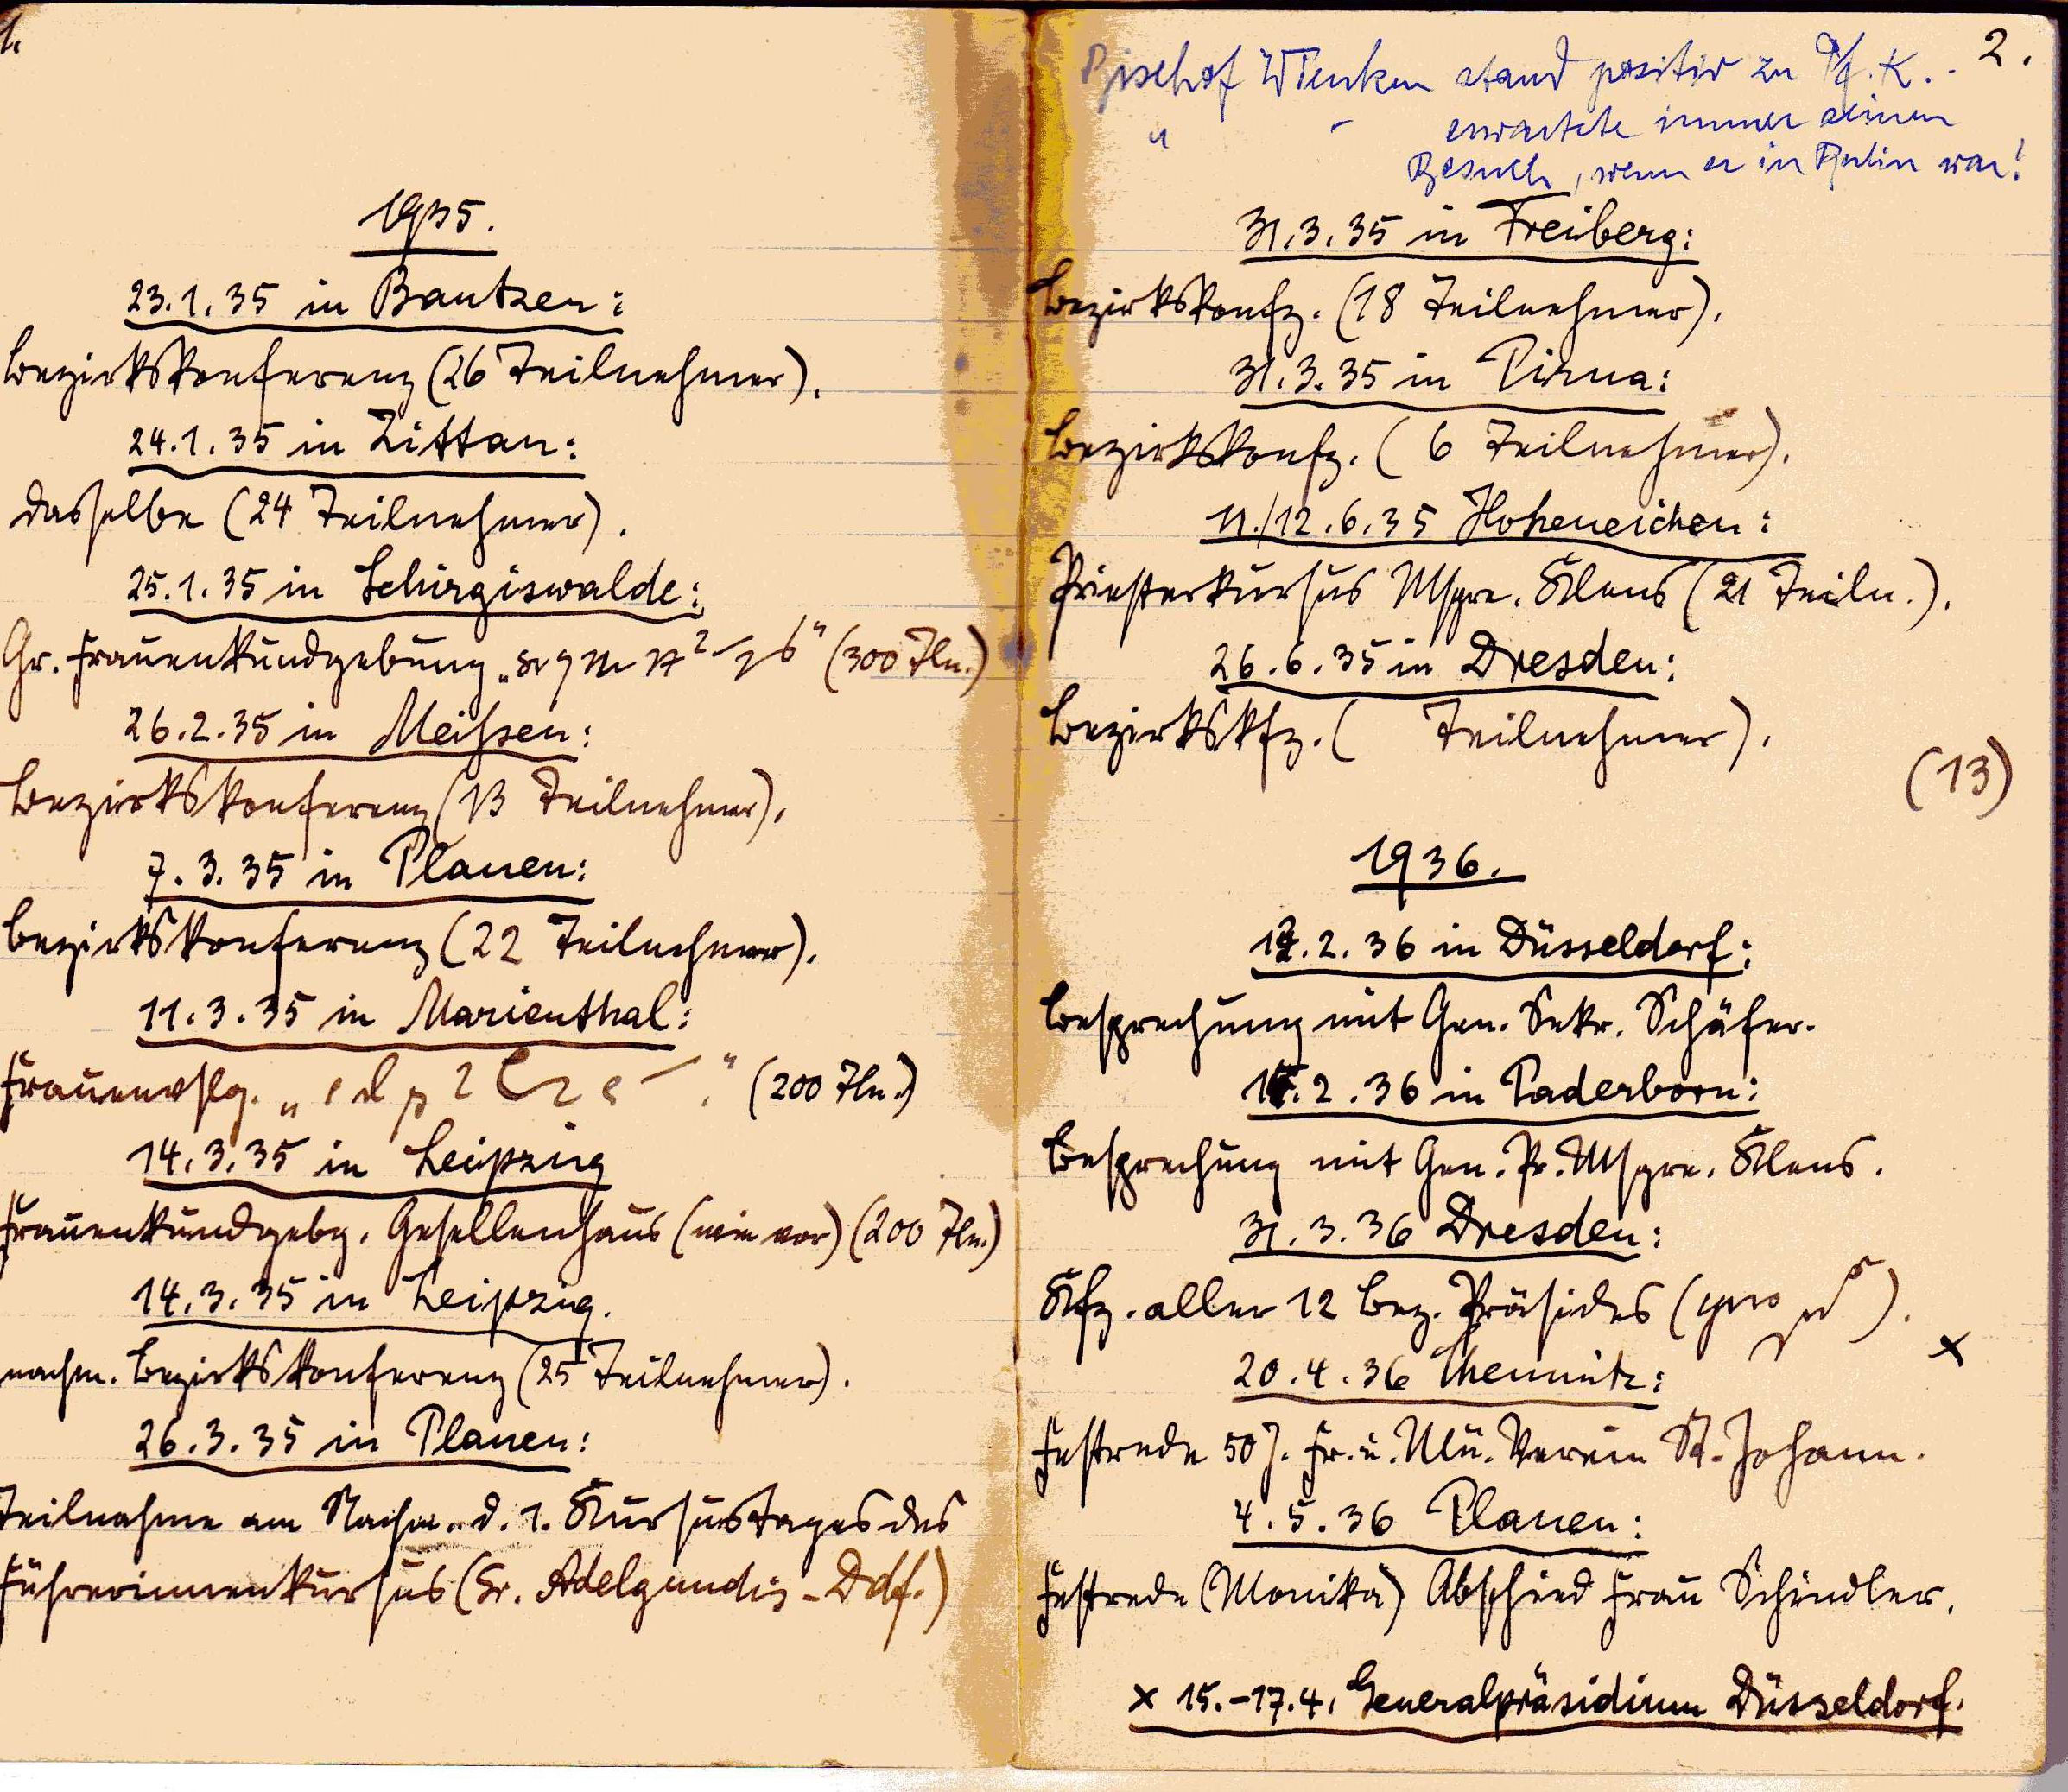 1.
1935.
23.1.35 in Bautzen:
Bezirkskonferenz (26 Teilnehmer).
24.1.35 in Zittau:
dasselbe (24 Teilnehmer).
25.1.35 in Schirgiswalde:
Gr. Frauenkundgebung (300 Tln.)
26.2.35 in Meissen:
Bezirkskonferenz (13 Teilnehmer).
7.3.35 in Plauen:
Bezirkskonferenz (22 Teilnehmer).
11.3.35 in Marienthal:
(200 Tln.)
14.3.35 in Leipzig
Frauenkundgebg. Gesellenhaus (wie vor) (200 Tln.)
14.3.35 in Leipzig.
nachm. Bezirkskonferenz (25 Teilnehmer).
26.3.35 in Plauen:
Teilnahme am Nachm. d. 1. Kursustages des
Führerinnenkursus (Sr. Adelgundis - Ddf.)
2.
Bischof Wienken stand positiv zu
" erwartete immer seinen
Besuch, wenn er in Berlin war!
31.3.35 in Freiberg:
Bezirkskonfz. (18 Teilnehmer).
31.3.35 in Pirna:
Bezirkskonfz. (6 Teilnehmer).
11./12.6.35 Hoheneichen:
Priesterkursus Msgre. Klens (21 Teiln.).
26.6.35 in Dresden:
Bezirkskfz. ( Teilnehmer).
(13)
1936.
.2.36 in Düsseldorf:
Besprechung mit Gen. Sekr. Schäfer.
.2.36 in Paderborn:
Besprechung mit Gen. Pr. Msgre. Klens.
31.3.36 Dresden:
Kfz. aller 12 Bez. Präsides ( ).
x
20.4.36 Chemnitz:
Festrede 50 J. Fr. u. Mü. Verein St. Johann.
4.5.36 Plauen:
Festrede (Monika) Abschied Frau Schindler.
x 15.-17.4. Generalpräsidium Düsseldorf.